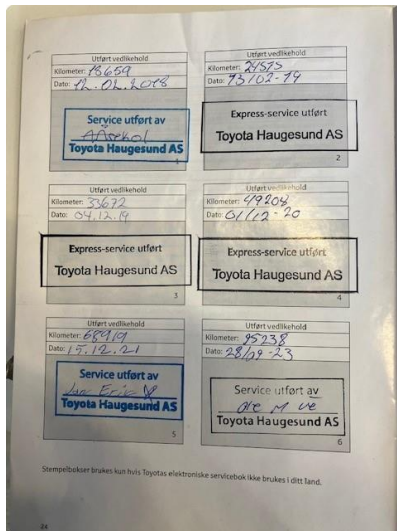 Utført vedlikehold
Kilometer: 13659
Dato: 12.02.2018
Service utført av
Toyota Haugesund AS
1
Utført vedlikehold
Kilometer: 24575
Dato: 13/02-19
Express-service utført
Toyota Haugesund AS
2
Utført vedlikehold
Kilometer: 33672
Dato: 04.12.19
Express-service utført
Toyota Haugesund AS
3
Utført vedlikehold
Kilometer: 49208
Dato: 01/12-20
Express-service utført
Toyota Haugesund AS
4
Utført vedlikehold
Kilometer: 68919
Dato: 15.12.21
Service utført av
Jan Erik
Toyota Haugesund AS
5
Utført vedlikehold
Kilometer: 95238
Dato: 28/09-23
Service utført av
Toyota Haugesund AS
6
Stempelbokser brukes kun hvis Toyotas elektroniske servicebok ikke brukes i ditt land.
24